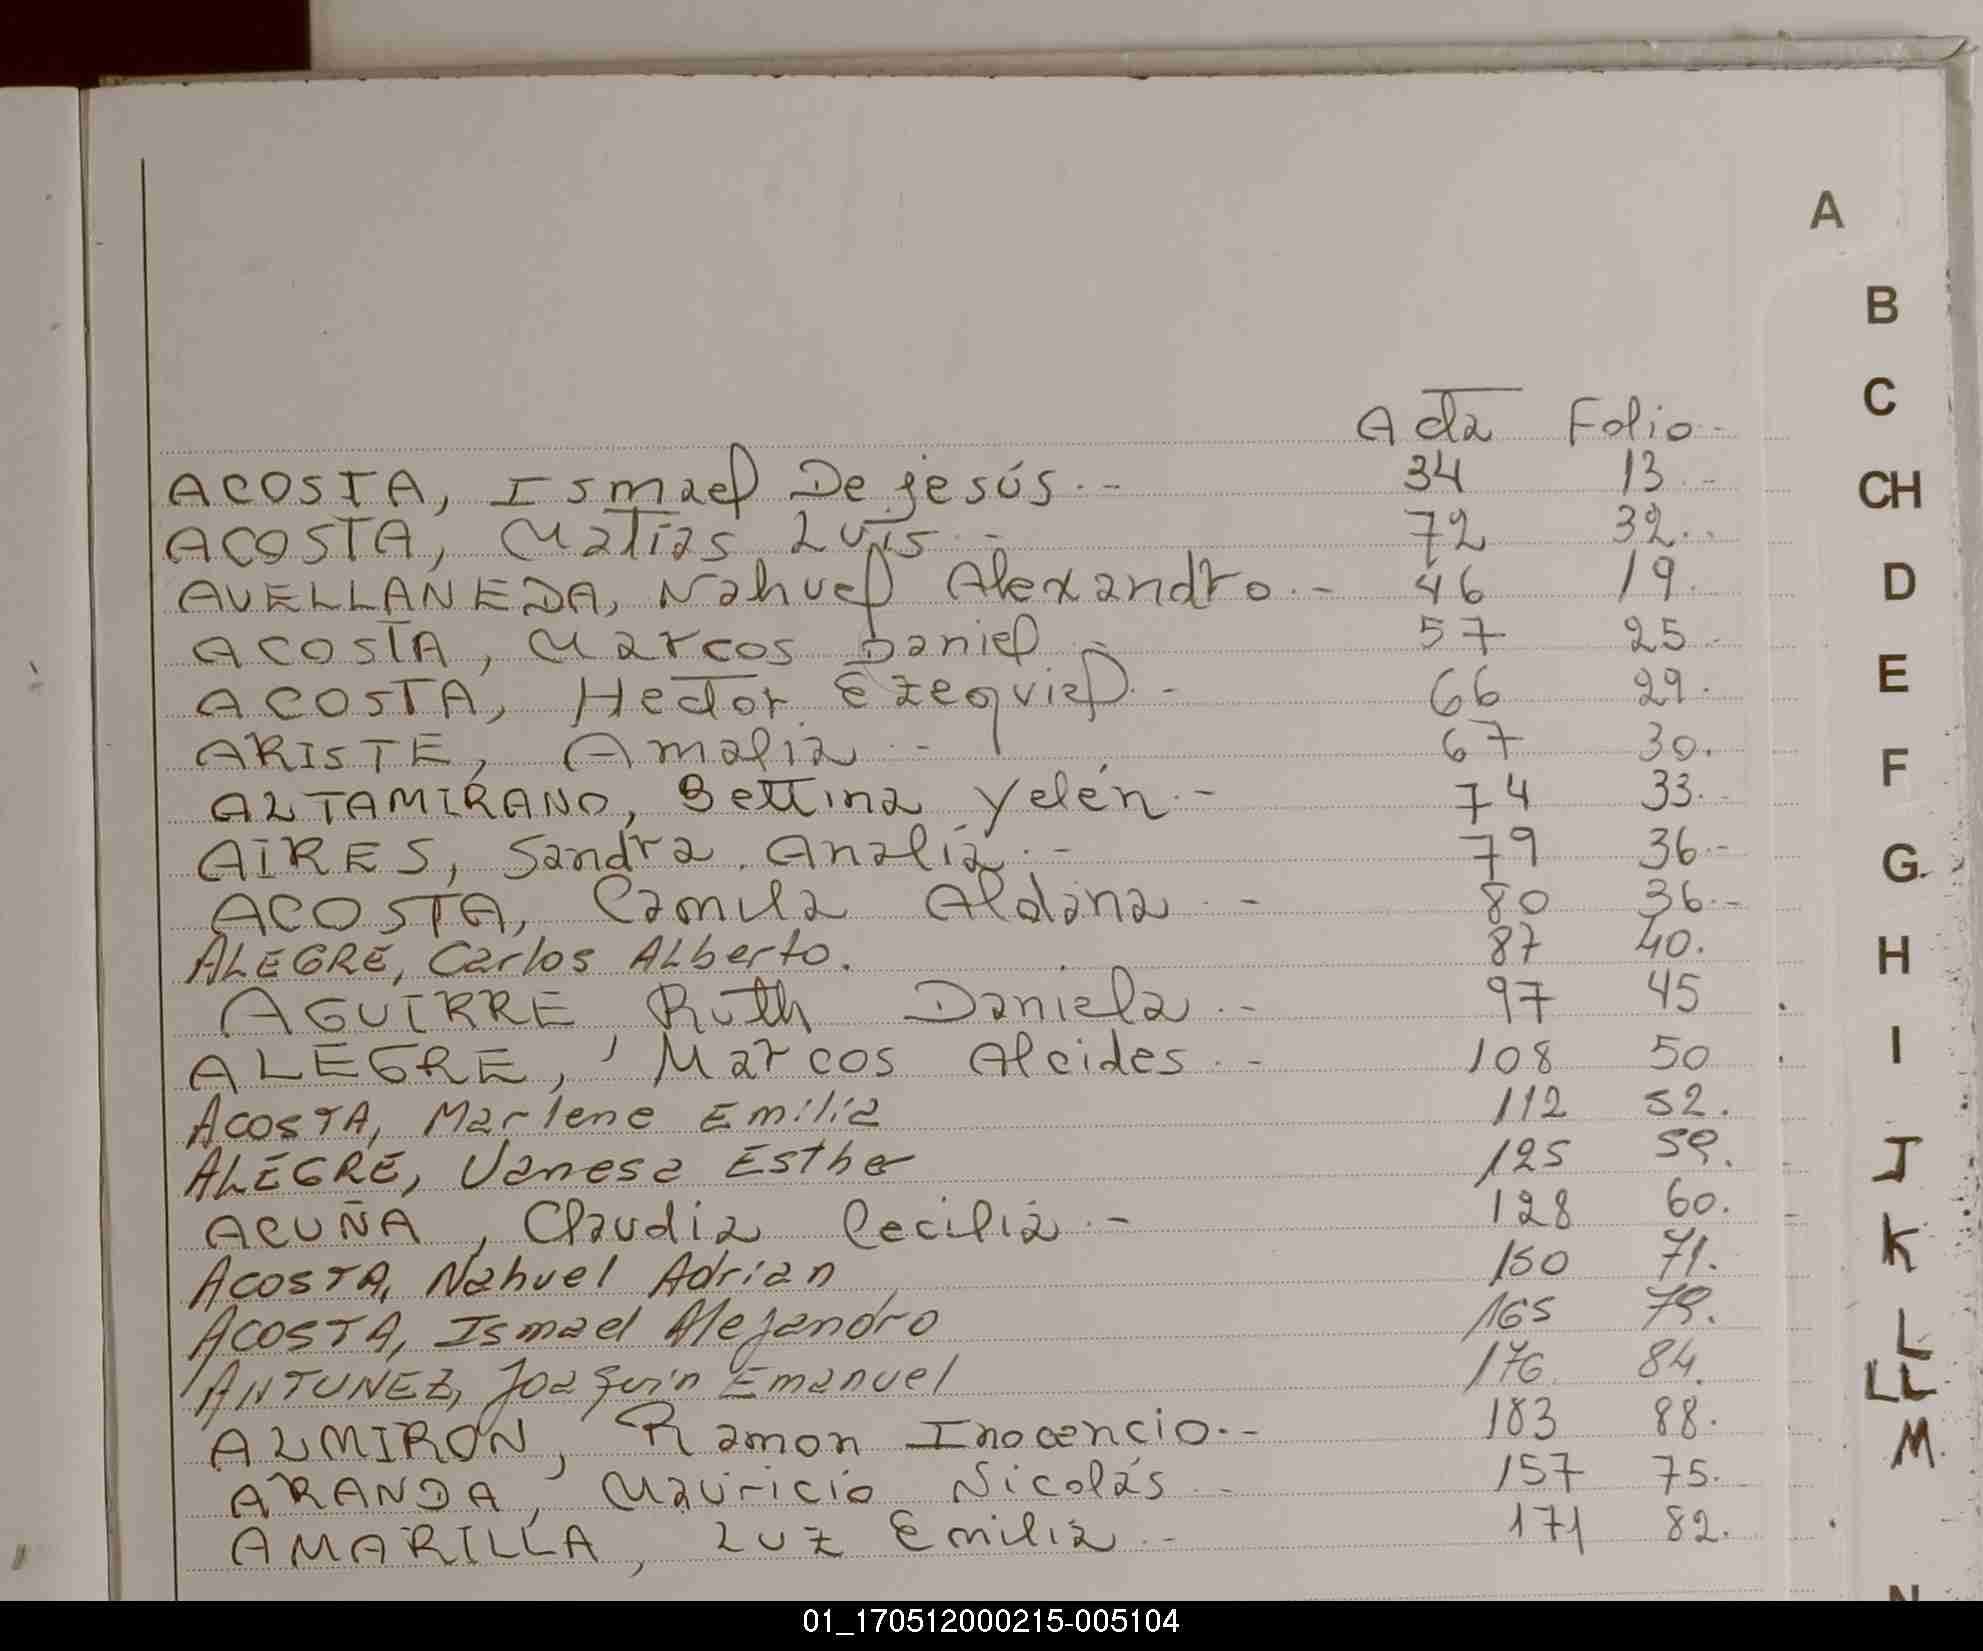 A
B
C
A cta Folio
ACOSTA, Ismael De jesús.-- 34 13.-
CH
ACOSTA, Matias Luis.- 72 32..
AVELLANEDA, Nahuel Alexandro.- 46 19.
D
ACOSTA, Marcos Daniel.- 57 25.-
ACOSTA, Hector Ezequiel.- 66 29.
E
ARISTE, Amalia.- 67 30.
ALTAMIRANO, Bettina Yelén.- 74 33.-
F
AIRES, Sandra Analía.- 79 36.-
G
ACOSTA, Camila Aldana.- 80 36.-
ALEGRE, Carlos Alberto. 87 40.
H
AGUIRRE, Ruth Daniela.- 97 45
ALEGRE, Marcos Alcides.- 108 50
I
ACOSTA, Marlene Emilia 112 52.
ALEGRE, Vanesa Esther 125 59.
J
ACUÑA, Claudia Cecilia.- 128 60.
ACOSTA, Nahuel Adrian 150 71.
K
ACOSTA, Ismael Alejandro 165 79.
L
ANTUNEZ, Joaquin Emanuel 176. 84.
LL
ALMIRON, Ramon Inocencio.- 183 88.
M.
ARANDA, Mauricio Nicolás.- 157 75.
AMARILLA, Luz Emilia.- 171 82.
N
01_170512000215-005104